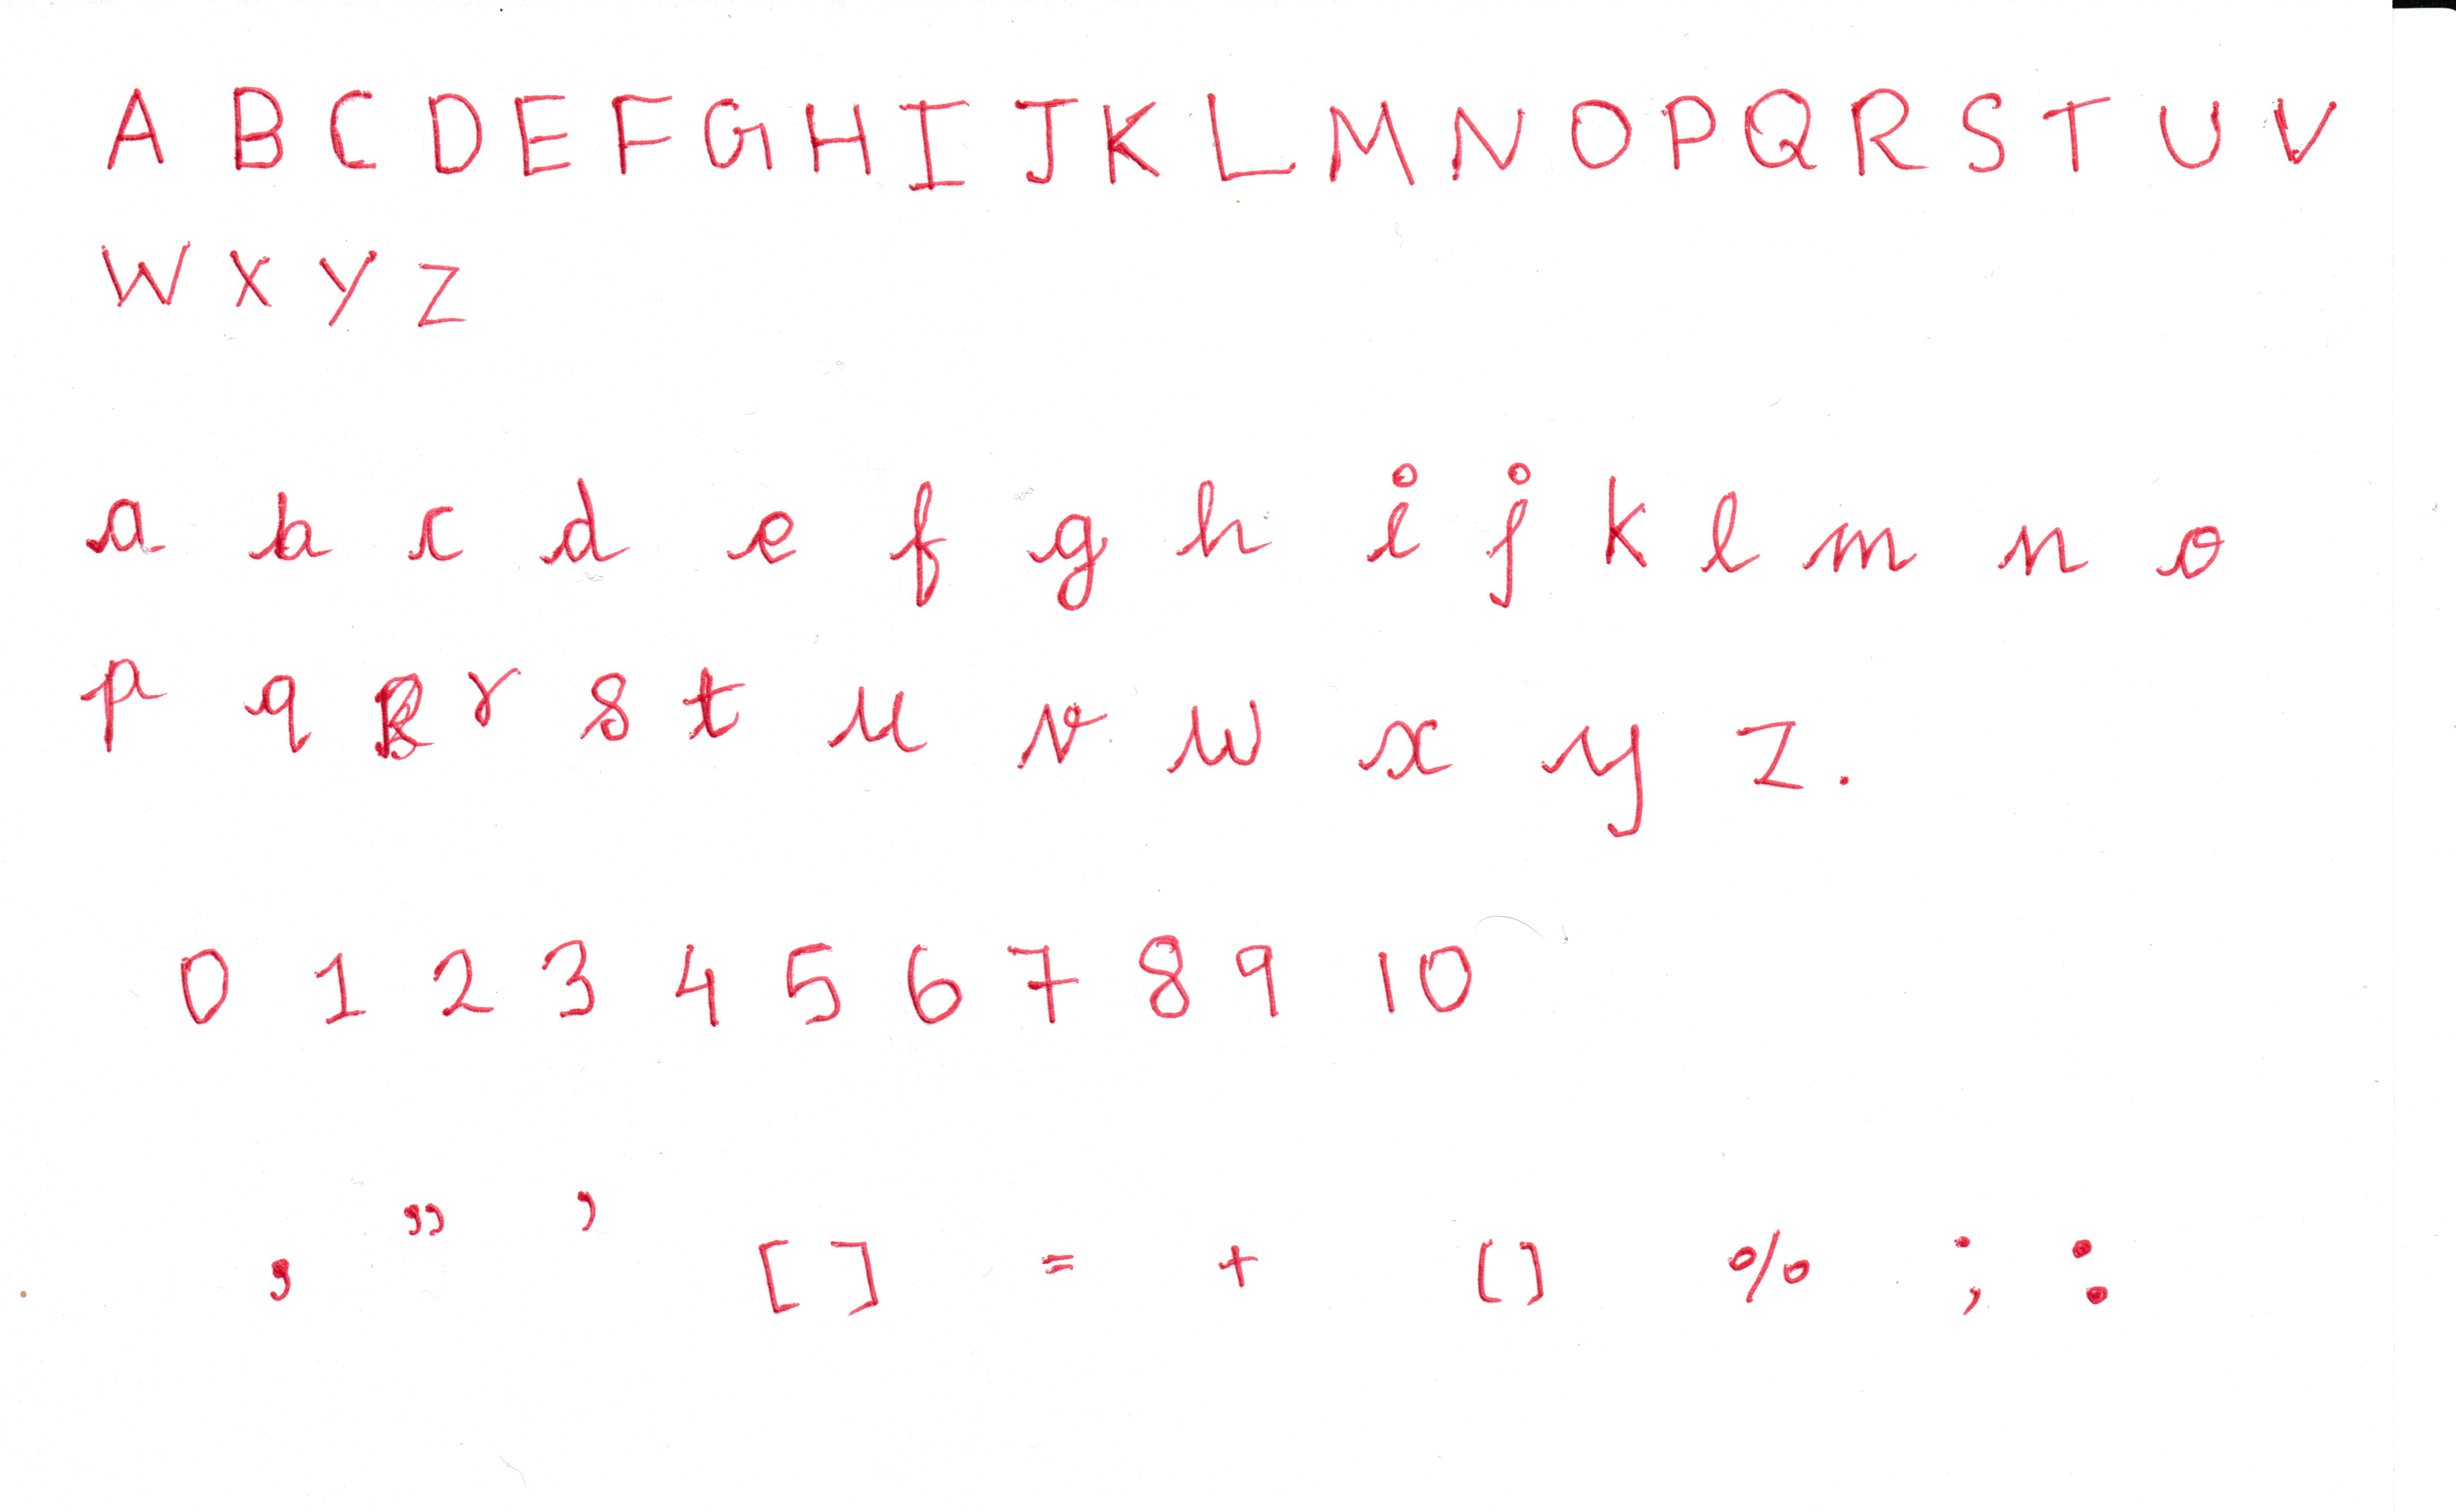 A B C D E F G H I J K L M N O P Q R S T U V
W X Y Z
a b c d e f g h i j k l m n o
p q r s t u v w x y z .
0 1 2 3 4 5 6 7 8 9 10
, ” ’ [ ] = + [ ] % ; :